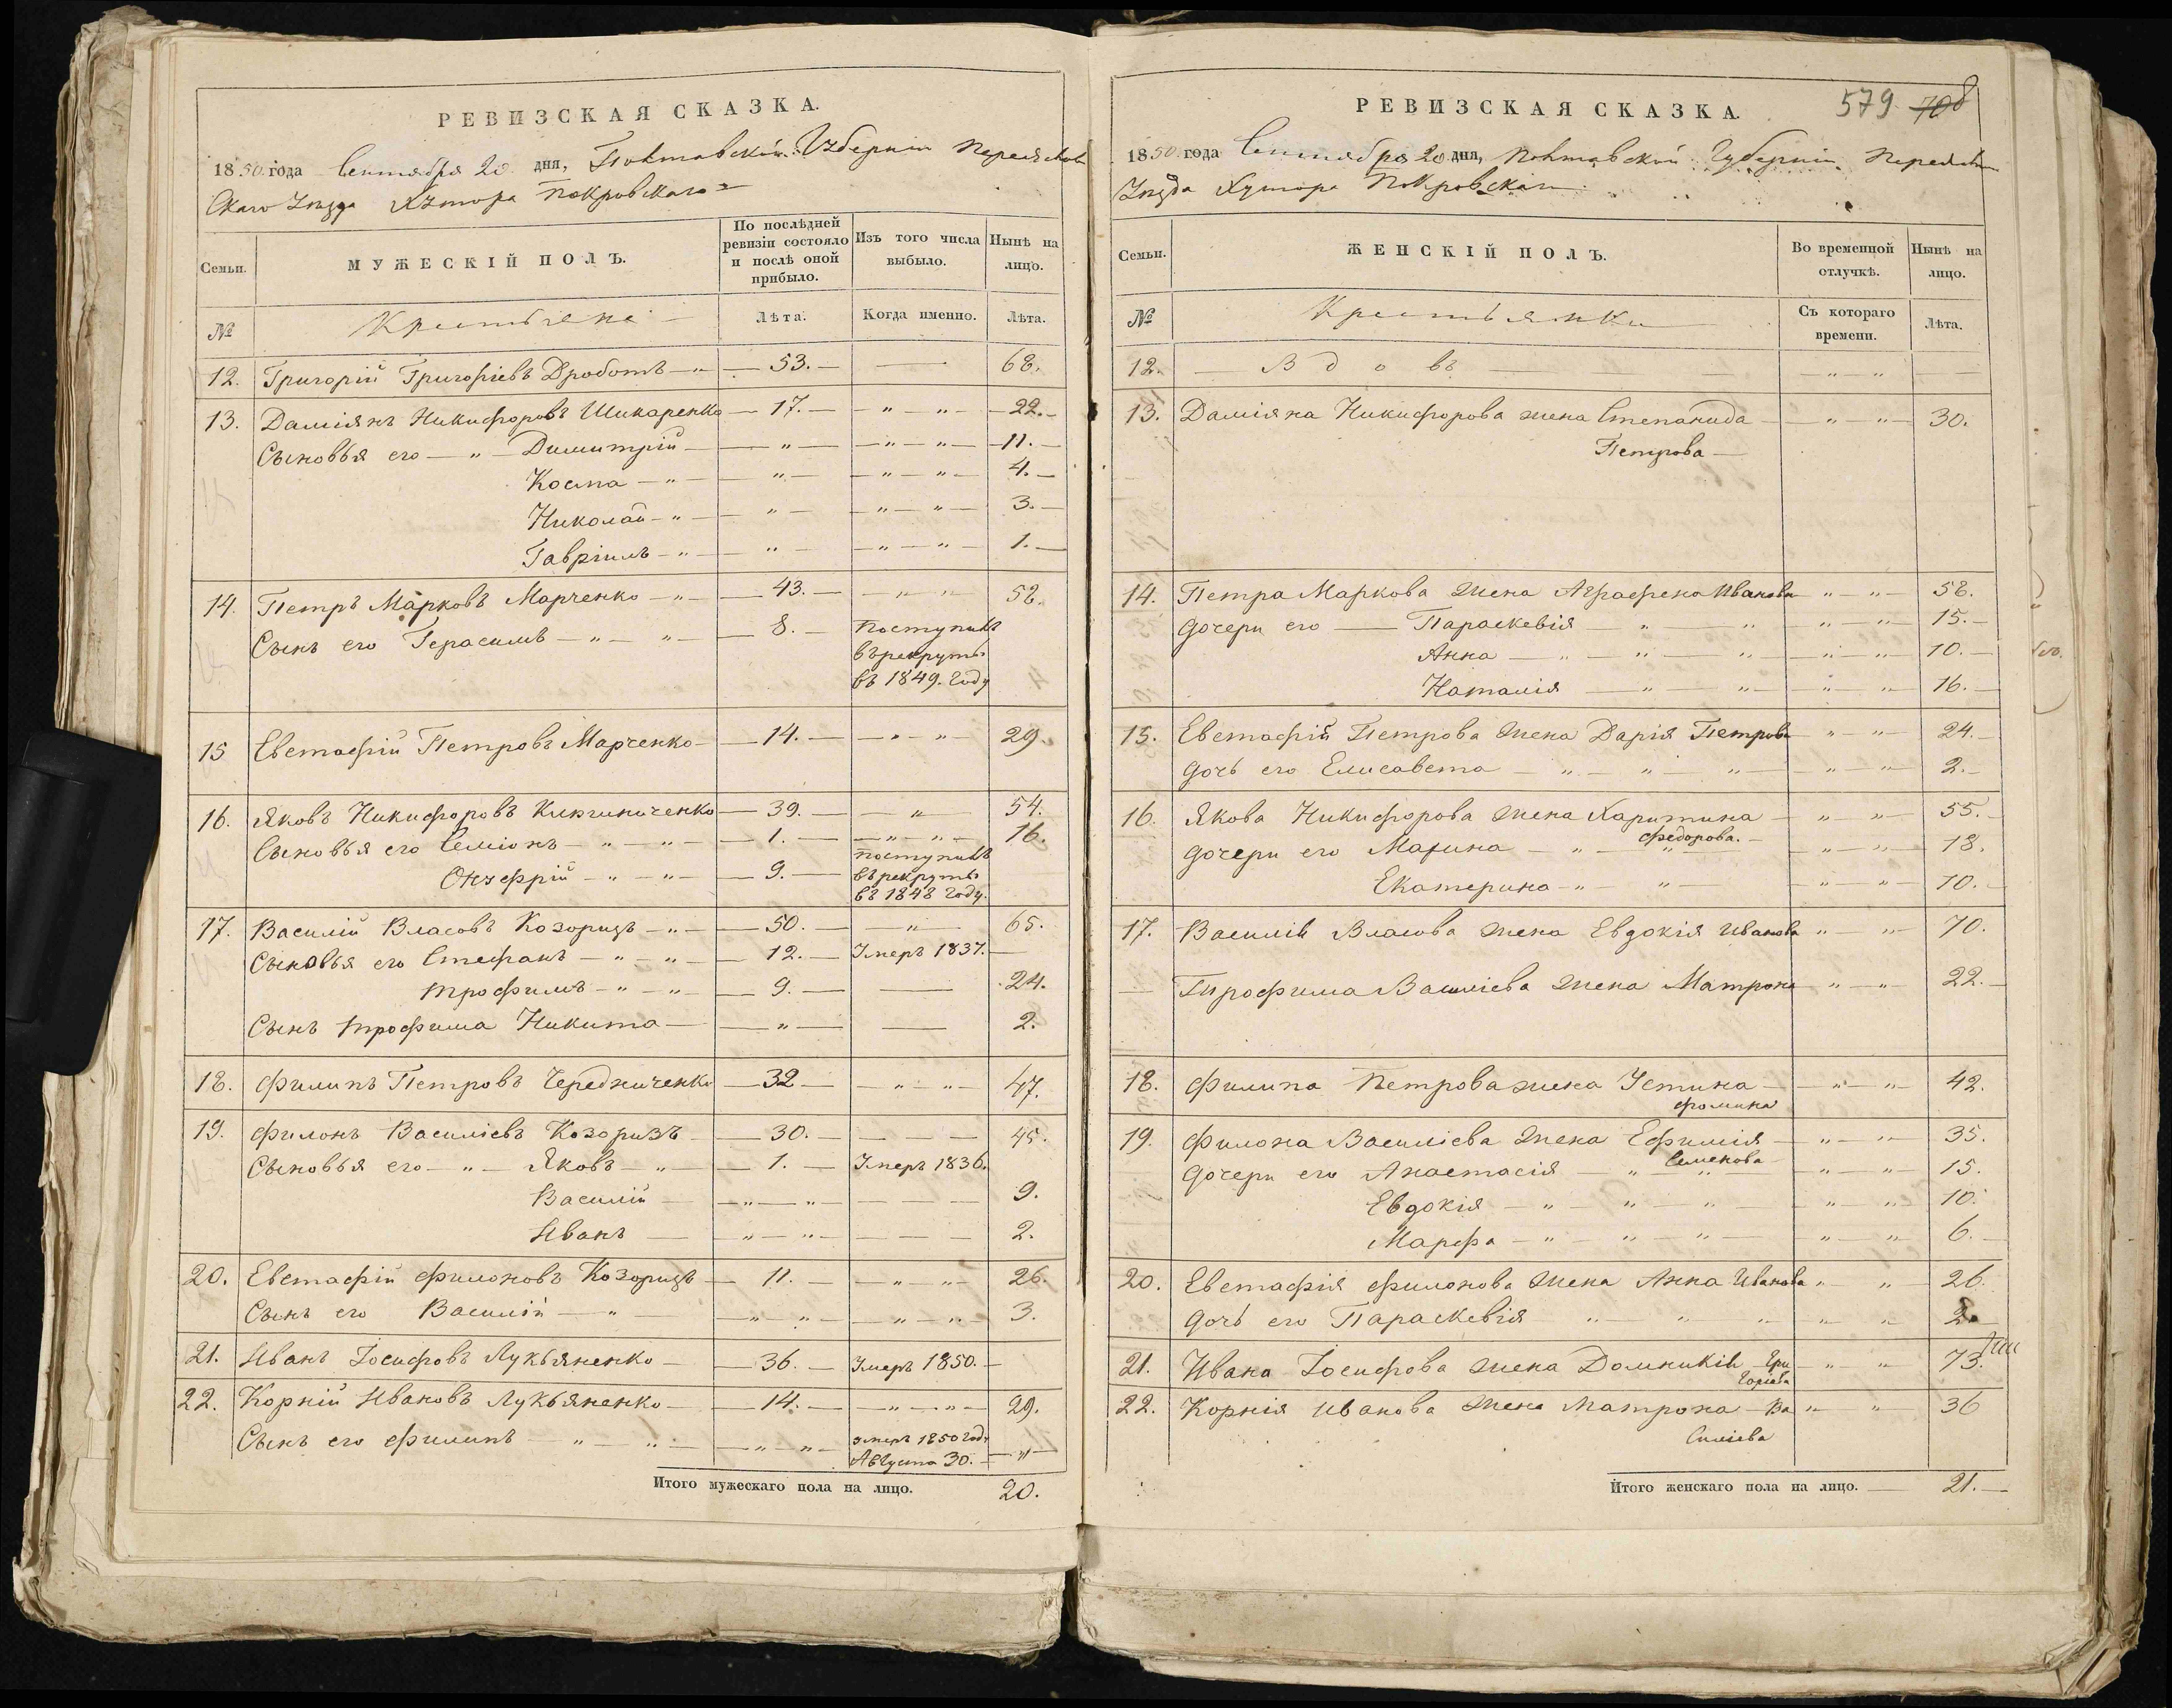 РЕВИЗСКАЯ СКАЗКА.
1850. года Сентября 20 дня, Полтавской Губерніи Переяслав
скаго Уѣзда Хутора Покровскаго
Семьи. МУЖЕСКІЙ ПОЛЪ. По послѣдней ревизіи состояло и послѣ оной прибыло. Изъ того числа выбыло. Нынѣ на лицо.
№ Крестьяне Лѣта. Когда именно. Лѣта.
12. Григорій Григоріевъ Дроботъ — " — 53. — — 68.
13. Даміянъ Никифоровъ Шикаренко — 17. — " — " — 22. —
Сыновья его — " — Димитрій — " — " — " — 11. —
Косма — " — " — " — " — 4. —
Николай — " — " — " — " — 3. —
Гавріилъ — " — " — " — " — 1. —
14. Петръ Марковъ Марченко — " — 43. — " — " 52.
Сынъ его Герасимъ — " — " — 8. — Поступилъ
въ рекруты
въ 1849. году
15 Евстафій Петровъ Марченко — 14. — " — " — 29.
16. Яковъ Никифоровъ Кириниченко — 39. — " — 54.
Сыновья его Семіонъ — " — " — 1. — " — " — 16.
Онуфрій — " — " — 9. — Поступилъ
въ рекруты
въ 1848 году.
17. Василій Власовъ Козоризъ — " — 50. — " — 65.
Сыновья его Стефанъ — " — " — 12. — Умеръ 1837. —
Трофимъ — " — " — 9. — — 24.
Сынъ Трофима Никита — " — — 2.
18. Филипъ Петровъ Чередниченко — 32 — " — " — 47.
19. Филонъ Василіевъ Козоризъ — 30. — — — — 45.
Сыновья его — " — Яковъ — " — 1. — Умеръ 1836.
Василій — " — " — — — — 9.
Иванъ — " — " — — — — 2.
20. Евстафій Филоновъ Козоризъ — 11. — " — " — 26.
Сынъ его Василій — " — " — " — " — " — 3.
21. Иванъ Іосифовъ Лукьяненко — 36. — Умеръ 1850. —
22. Корній Ивановъ Лукьяненко — 14. — " — " — 29.
Сынъ его Филипъ — " — " — " — " — умеръ 1850 году
Августа 30. — " —
Итого мужескаго пола на лицо. 20.
579. 708
РЕВИЗСКАЯ СКАЗКА.
1850 года Сентября 20 дня, Полтавской Губерніи Переяслав
Уѣзда Хутора Покровскаго
Семьи. ЖЕНСКІЙ ПОЛЪ. Во временной отлучкѣ. Нынѣ на лицо.
№ Крестьянки Съ котораго времени. Лѣта.
12. — Вдовъ — " — " —
13. Даміяна Никифорова жена Степанида — " — " — 30.
Петрова —
14. Петра Маркова жена Аграфена Иванова " — " — 58.
дочери его — Параскевія " — " — " — " — 15. —
Анна — " — " — " — " — " — 10. —
Наталія — " — " — " — " — 16. —
15. Евстафій Петрова жена Дарія Петрова " — " — 24. —
дочь его Елисавета — " — " — " — " — " — 2. —
16. Якова Никифорова жена Харитина — " — " — 55. —
Федорова. —
дочери его Марина — " — " — " — " — 18.
Екатерина — " — " — " — " — 10. —
17. Василій Власова жена Евдокія Иванова " — " — 70.
Трофима Василіева жена Матрона " — " — 22. —
18. Филипа Петрова жена Устина — " — " — 42.
Фомина
19. Филона Василіева жена Ефимія — " — " — 35.
Семенова
дочери его Анастасія " — " — " — 15.
Евдокія — " — " — " — " — " — 10.
Марфа — " — " — " " — " — 6. —
20. Евстафія Филонова жена Анна Иванова " " — 26.
дочь его Параскевія " — " — " — " — " 2.
21. Ивана Іосифова жена Домникія Гри — " — " 73.
горіева
22. Корнія Иванова жена Матрона — Ва " — " 36
силіева
Итого женскаго пола на лицо. — 21. —